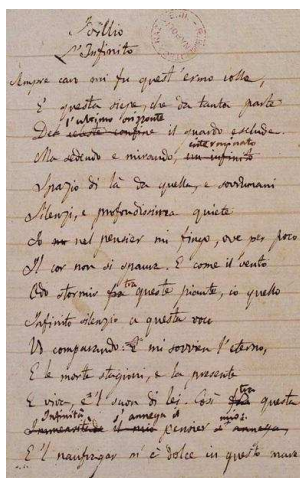 Idillio
L'Infinito
Sempre caro mi fu quest'ermo colle,
E questa siepe, che da tanta parte
l'ultimo orizzonte
De celeste confine il guardo esclude.
interminato
Ma sedendo e mirando, un infinito
Spazio di là da quella, e sovrumani
Silenzi, e profondissima quiete
Io nel pensier mi fingo, ove per poco
Il cor non si spaura. E come il vento
tra
Odo stormir fra queste piante, io quello
Infinito silenzio a questa voce
Vo comparando: E mi sovvien l'eterno,
E le morte stagioni, e la presente
tra
E viva, e 'l suon di lei. Così fra questa
Infinità s'annega il mio:
Immensitade il mio pensier s'annega,
E 'l naufragar m'è dolce in questo mare